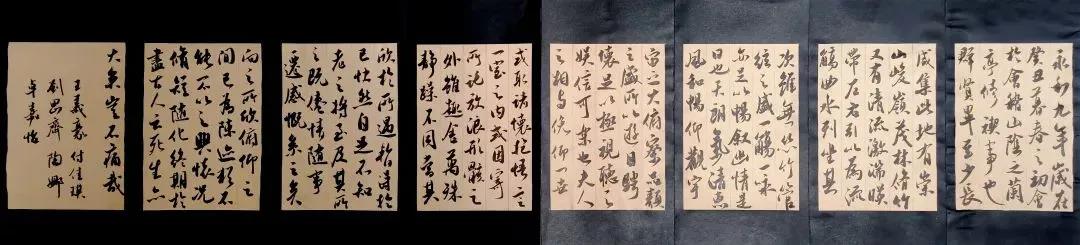 永和九年歲在
癸丑暮春之初會
於會稽山陰之蘭
亭修禊事也
群賢畢至少長
咸集此地有崇
山峻嶺茂林脩竹
又有清流激湍暎
帶左右引以為流
觴曲水列坐其
次雖無絲竹管
絃之盛一觴一詠
亦足以暢叙幽情是
日也天朗氣清惠
風和暢仰觀宇
宙之大俯察品類
之盛所以遊目騁
懷足以極視聽之
娛信可樂也夫人
之相與俯仰一世
或取諸懷抱悟言
一室之內或因寄
所託放浪形骸之
外雖趣舍萬殊
靜躁不同當其
欣於所遇暫得於
己快然自足不知
老之將至及其所
之既倦情隨事
遷感慨係之矣
向之所欣俛仰之
間已為陳迹猶不
能不以之興懷況
脩短隨化終期於
盡古人云死生亦
大矣豈不痛哉
王義豪 付佳琪
劉思齊 陶娜
卓嘉怡